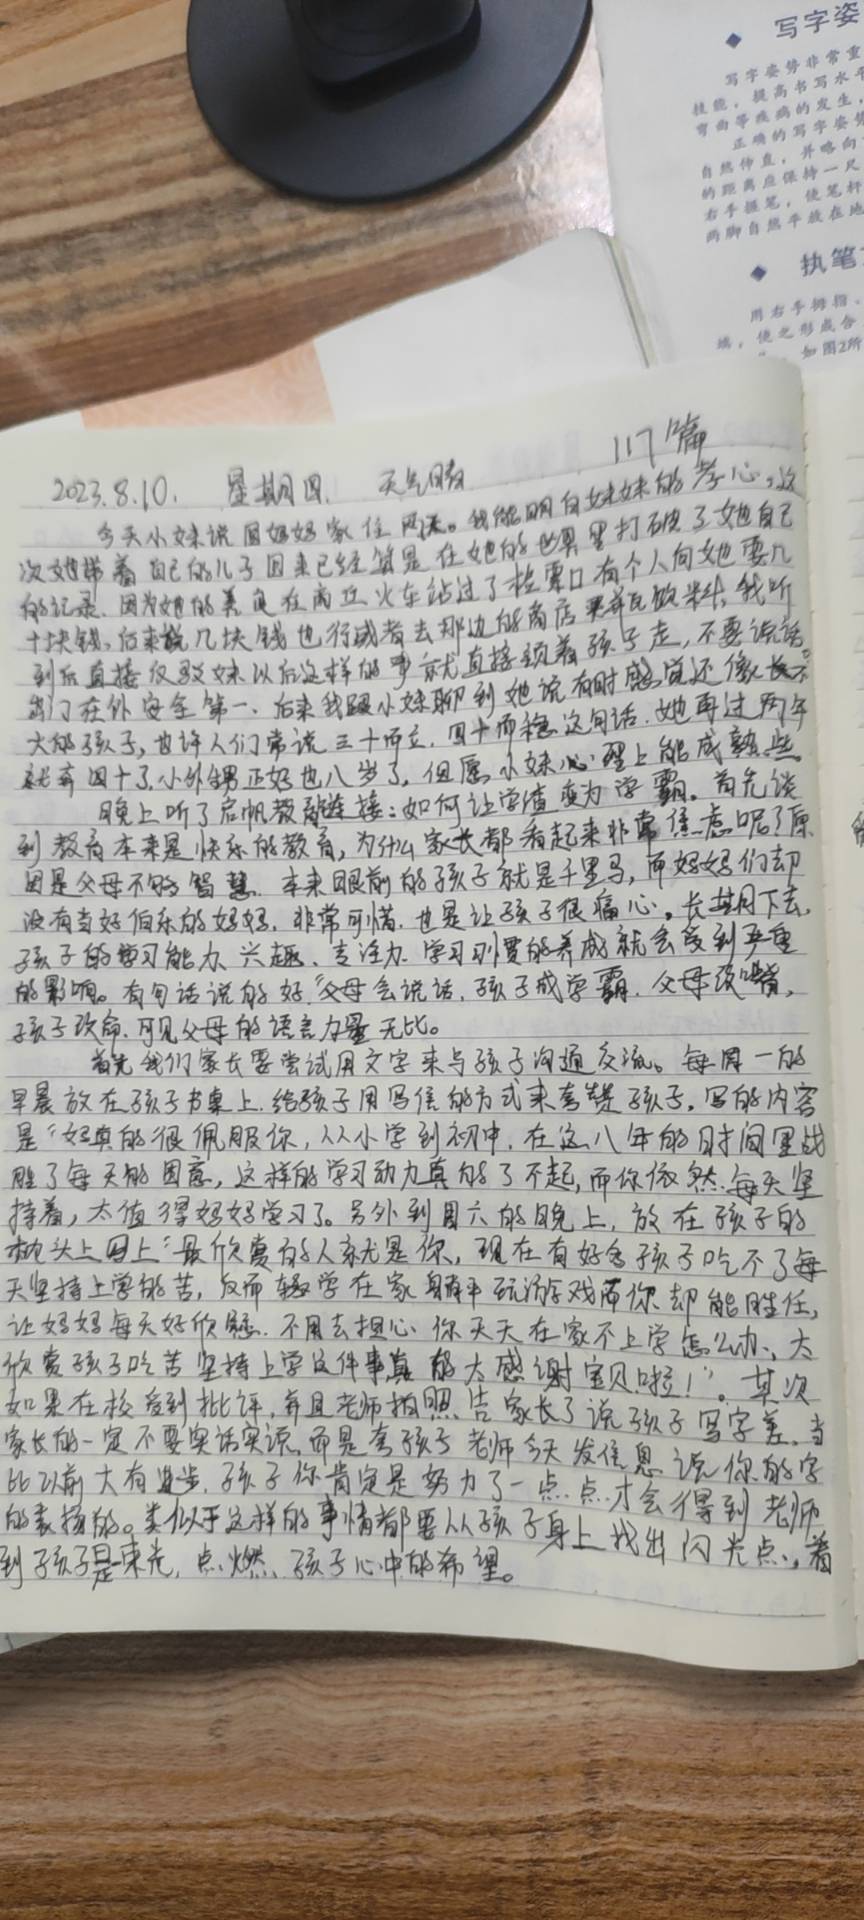 写字姿
写字姿势非常重
技能,提高书写水平
弯曲等疾病的发生,
正确的写字姿势
自然伸直,并略向
的距离应保持一尺
右手握笔,使笔杆
两脚自然平放在地
执笔
用右手拇指、
端,使之形成合
如图2所
117篇
2023.8.10. 星期四. 天气晴
今天小妹说回妈妈家住两天。我能明白妹妹的孝心,这
次她带着自己的儿子回来已经算是在她的世界里打破了她自己
的记录.因为她的善良在商丘火车站过了检票口有个人向她要几
十块钱,后来说几块钱也行或者去那边的商店买瓶饮料,我听
到后直接教妹以后这样的事就直接领着孩子走,不要说话。
出门在外安全第一.后来我跟小妹聊到她说有时感觉还像长不
大的孩子,也许人们常说三十而立.四十而稳这句话.她再过两年
就奔四十了.小外甥正好也八岁了,但愿小妹心理上能成熟些。
晚上听了启帆教育链接:如何让学渣变为学霸。首先谈
到教育本来是快乐的教育,为什么家长都看起来非常焦虑呢?原
因是父母不够智慧.本来眼前的孩子就是千里马,而妈妈们却
没有当好伯乐的妈妈.非常可惜.也是让孩子很痛心。长期下去,
孩子的学习能力、兴趣、专注力.学习习惯的养成就会受到严重
的影响。有句话说的好,"父母会说话,孩子成学霸.父母改嘴,
孩子改命.可见父母的语言力量无比。
首先我们家长要尝试用文字来与孩子沟通交流。每周一的
早晨放在孩子书桌上.给孩子用写信的方式来夸赞孩子。写的内容
是"妈真的很佩服你,从小学到初中.在这八年的时间里战
胜了每天的困意,这样的学习动力真的了不起,而你依然每天坚
持着,太值得妈妈学习了。另外到周六的晚上,放在孩子的
枕头上写上"最欣赏的人就是你,现在有好多孩子吃不了每
天坚持上学的苦,反而辍学在家躺平玩游戏而你却能胜任,
让妈妈每天好欣慰.不用去担心你天天在家不上学怎么办、太
欣赏孩子吃苦坚持上学这件事真的太感谢宝贝啦!"。其次
如果在校受到批评,并且老师拍照告家长了说孩子写字差.当
家长的一定不要实话实说,而是夸孩子老师今天发信息说你的字
比以前大有进步.孩子你肯定是努力了一点点才会得到老师
的表扬的。类似于这样的事情都要从孩子身上找出闪光点,看
到孩子是束光,点燃孩子心中的希望。